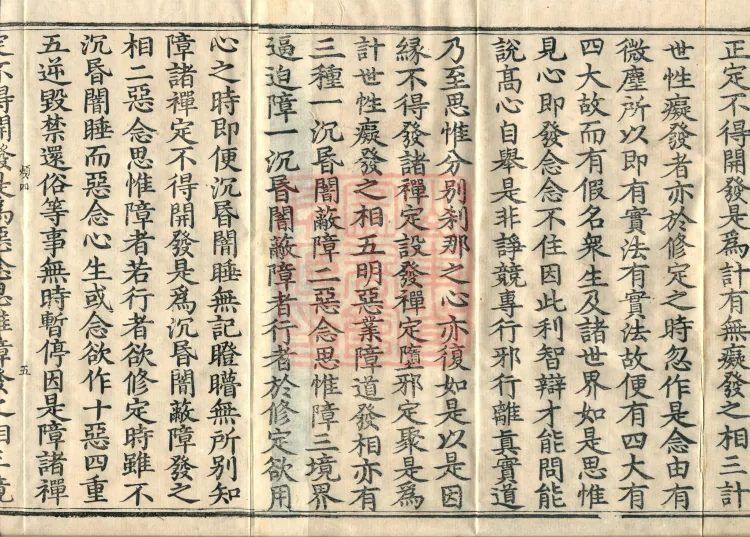 正定不得開發是爲計有無癡發之相三計
世性癡發者亦於修定之時忽作是念由有
微塵所以即有實法有實法故便有四大有
四大故而有假名衆生及諸世界如是思惟
見心即發念念不住因此利智辯才能問能
說髙心自舉是非諍競專行邪行離真實道
乃至思惟分別刹那之心亦復如是以是因
縁不得發諸禪定設發禪定墮邪定聚是爲
計世性癡發之相五明惡業障道發相亦有
三種一沉昬闇蔽障二惡念思惟障三境界
逼迫障一沉昬闇蔽障者行者於修定欲用
心之時即便沉昬闇睡無記瞪瞢無所別知
障諸禪定不得開發是爲沉昬闇蔽障發之
相二惡念思惟障者若行者欲修定時雖不
沉昬闇睡而惡念心生或念欲作十惡四重
五逆毀禁還俗等事無時暫停因是障諸禪
五
定不得開發是爲惡念思惟障發之相三境